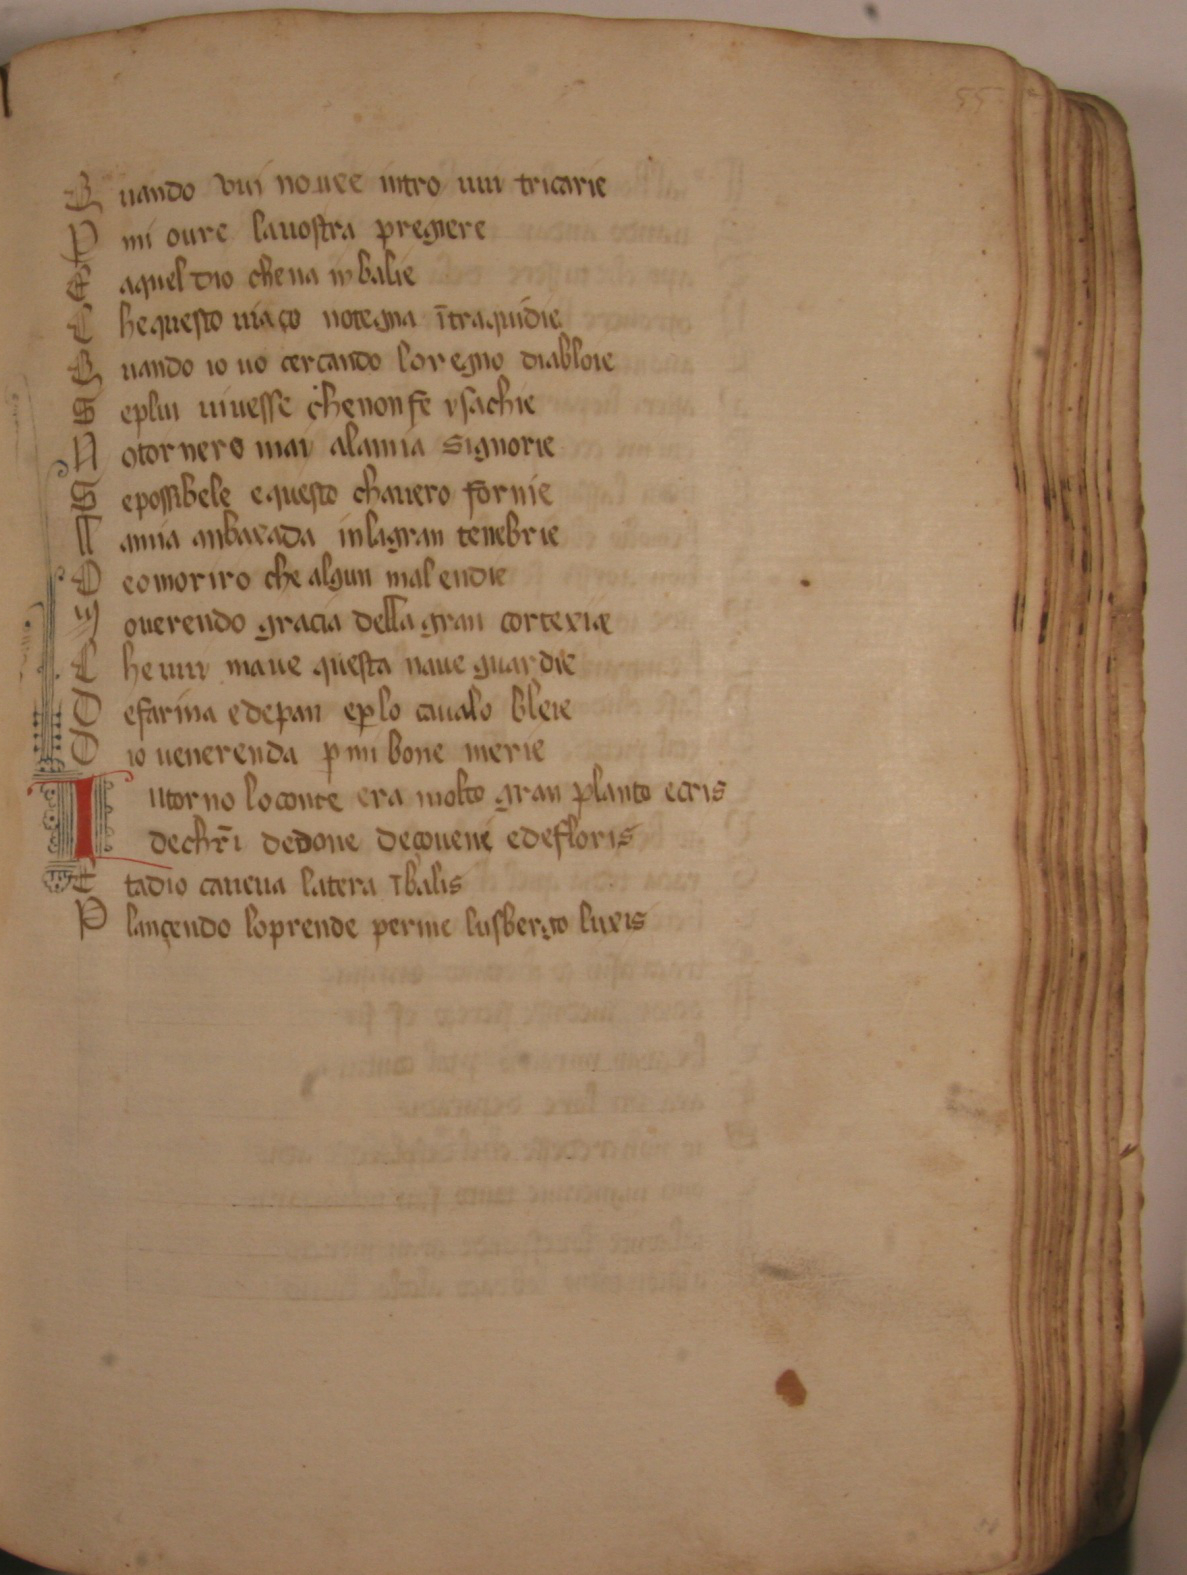 55
Quando vui no uee intro uui tricarie
P mi oure lauostra pregiere
E aquel dio che na in balie
C hequesto uiaço notegna ītraquidie
Q uando io uo cercando loregno diabloie
S eplui uiuesse chenonfe ysachie
N otornero mai alamia signorie
S epossibele equesto chauero fornie
L amia anbaxada inlagran tenebrie
D eomoriro che algun mal endie
Q ouerendo gracia della gran cortexiæ
C he uui maue questa naue guardie
D efarina edepan eplo caualo bleie
D io uenerenda p mi bone merie
I ntorno loconte era molto gran planto ecris
dechr̄i dedone deçouene edefloris
E tadio caueua latera ībalis
P lançendo loprende perme lusbergo luxis